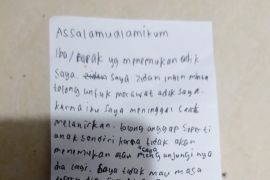 Assalamualaikum
Ibu/Bapak yg menemukan adik
saya. saya Zidan ingin minta
tolong untuk merawat adik saya.
karna ibu saya meninggal saat
melahirkan. tolong anggap seperti
anak sendiri karna tidak akan
menemukan atau mengunjungi nya
lagi. saya tidak mau masa